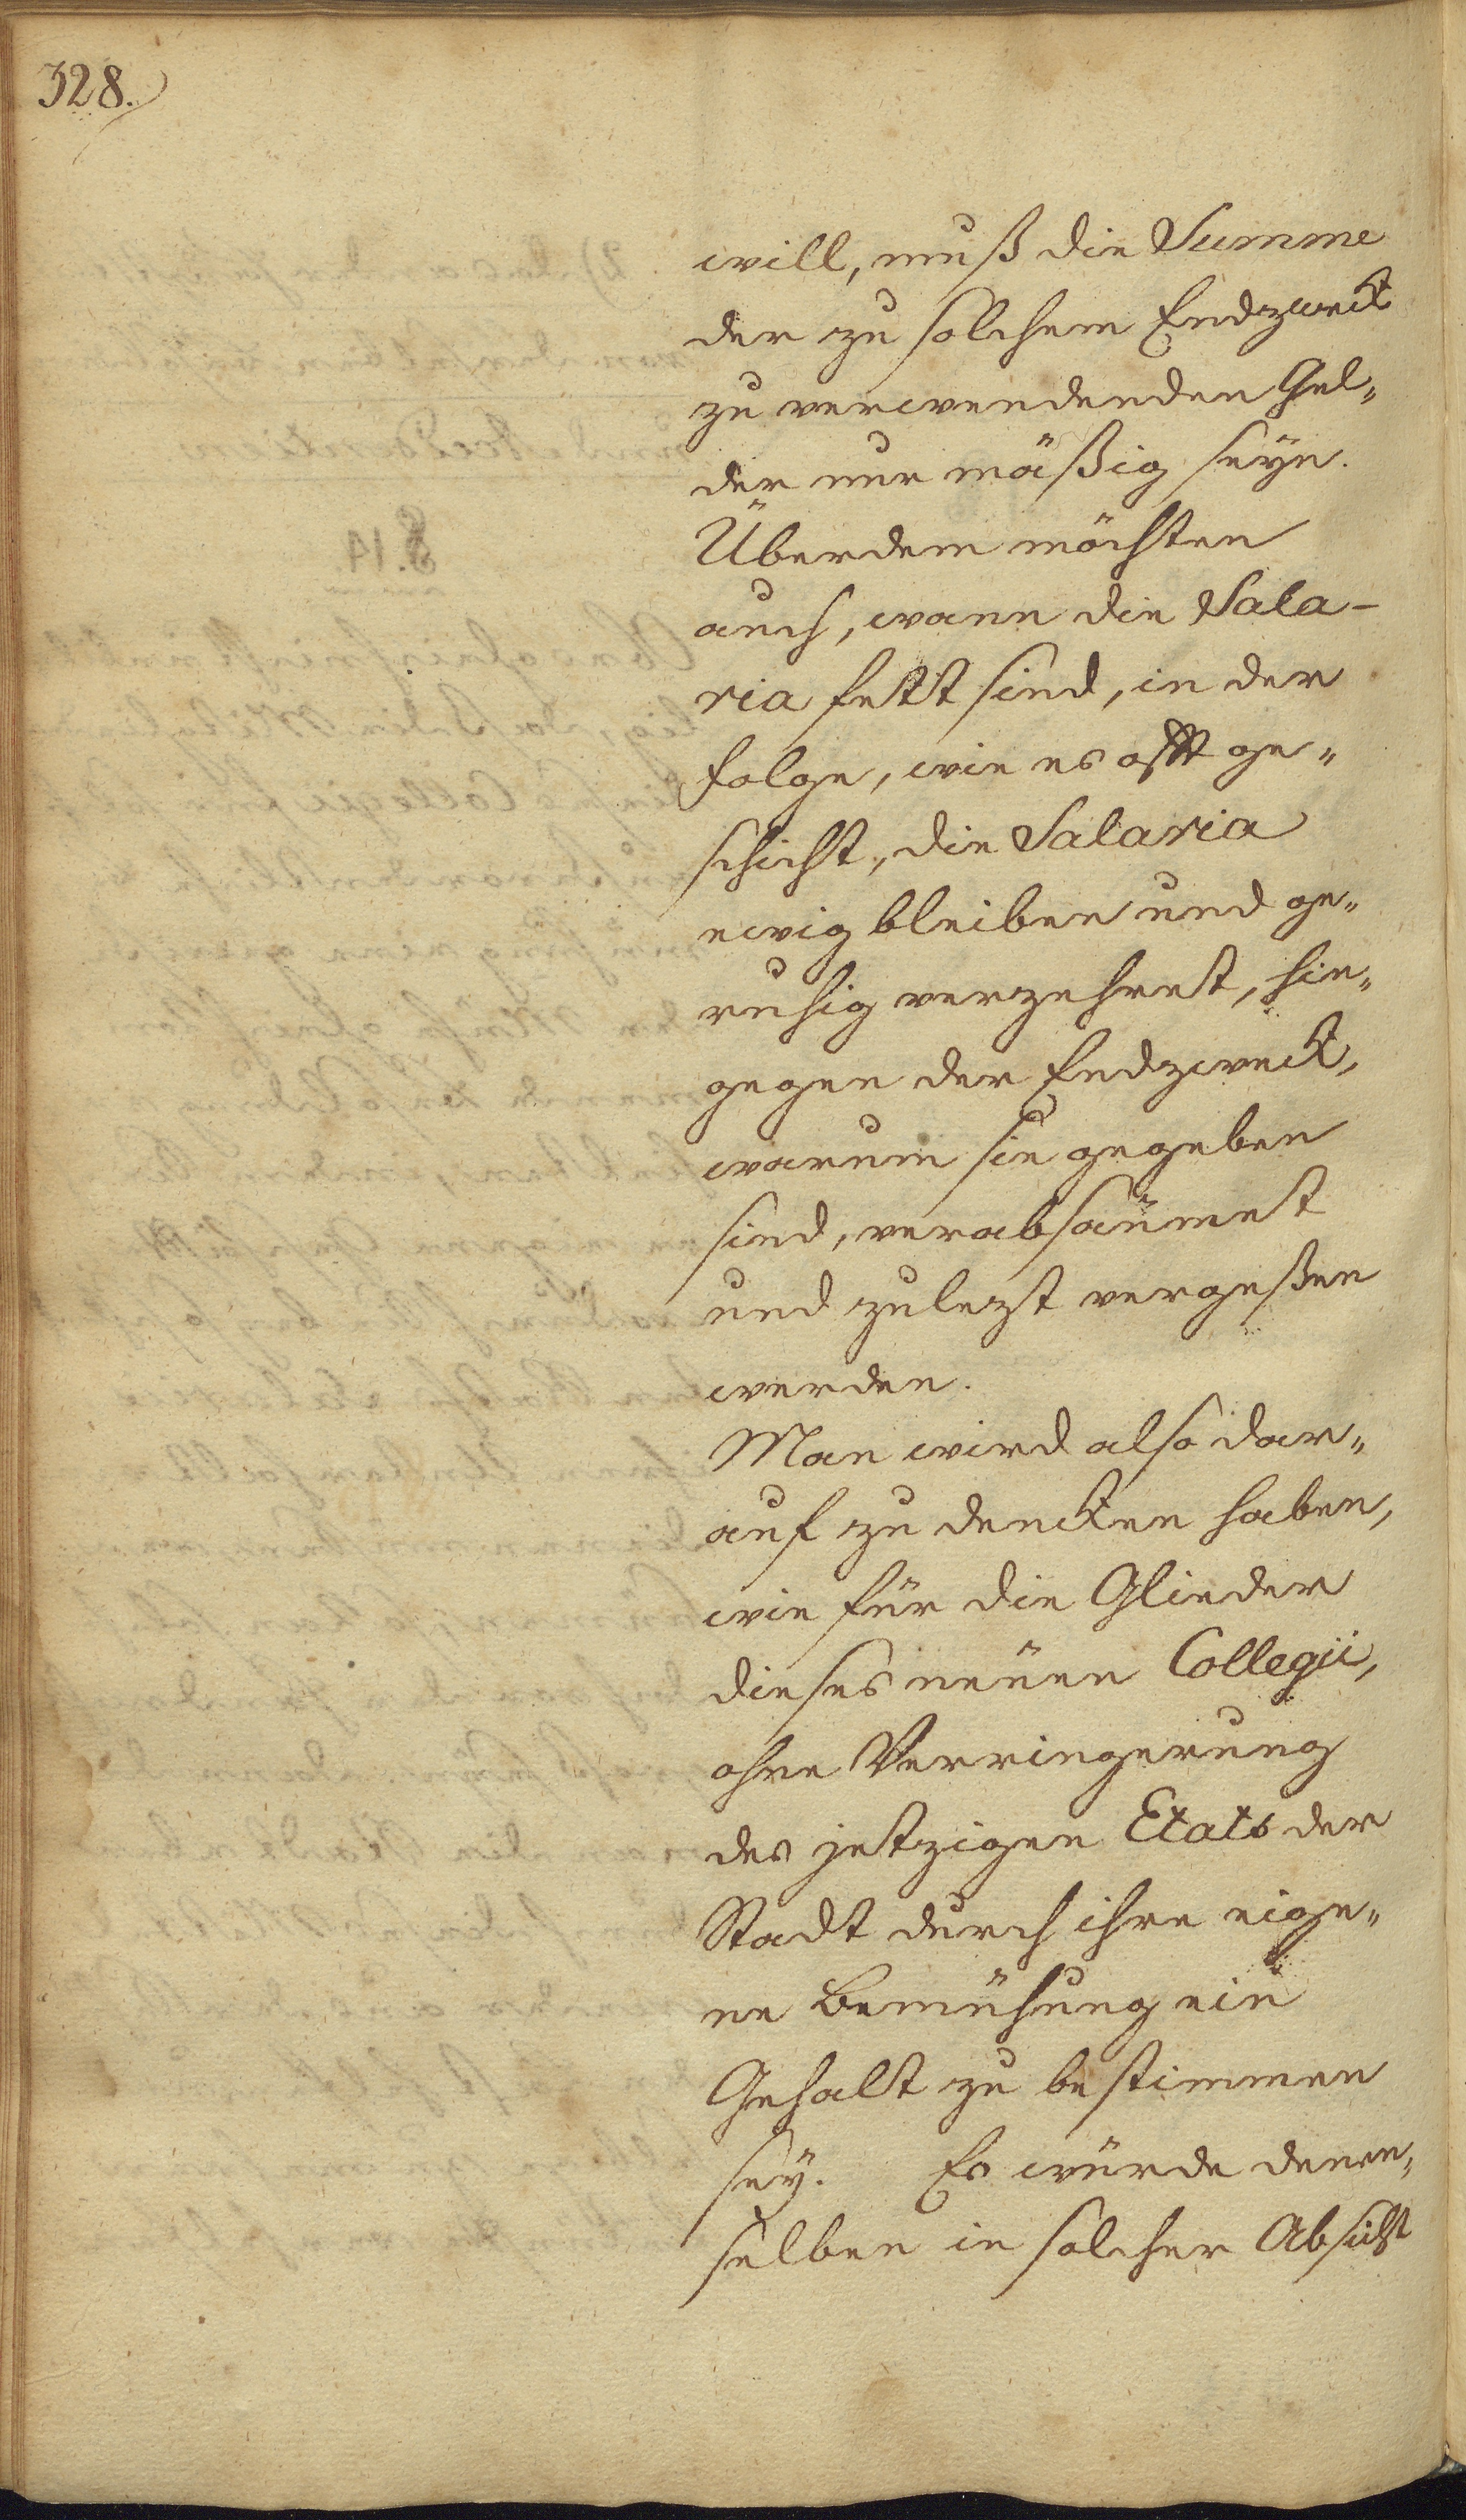 328.
will, muß die Summe
der zu solchem Endzweck
zu verwendenden Gel„
der nur mäßig seyn.
Überdem möchten
auch, wann die Sala-
ria fett sind, in der
Folge, wie es offt ge„
schicht, die Salaria
ewig bleiben und ge„
ruhig verzehret, hin„
gegen der Endzweck,
warum sie gegeben
sind, verabsäumet
und zulezt vergeßen
werden.
Man wird also dar„
auf zu dencken haben,
wie für die Glieder
dieses neuen Collegii,
ohne Verringerung
des jetzigen Etats der
Stadt durch ihre eige„
ne Bemühung ein
Gehalt zu bestimmen
sey. Es würde denen„
selben in solcher Absicht